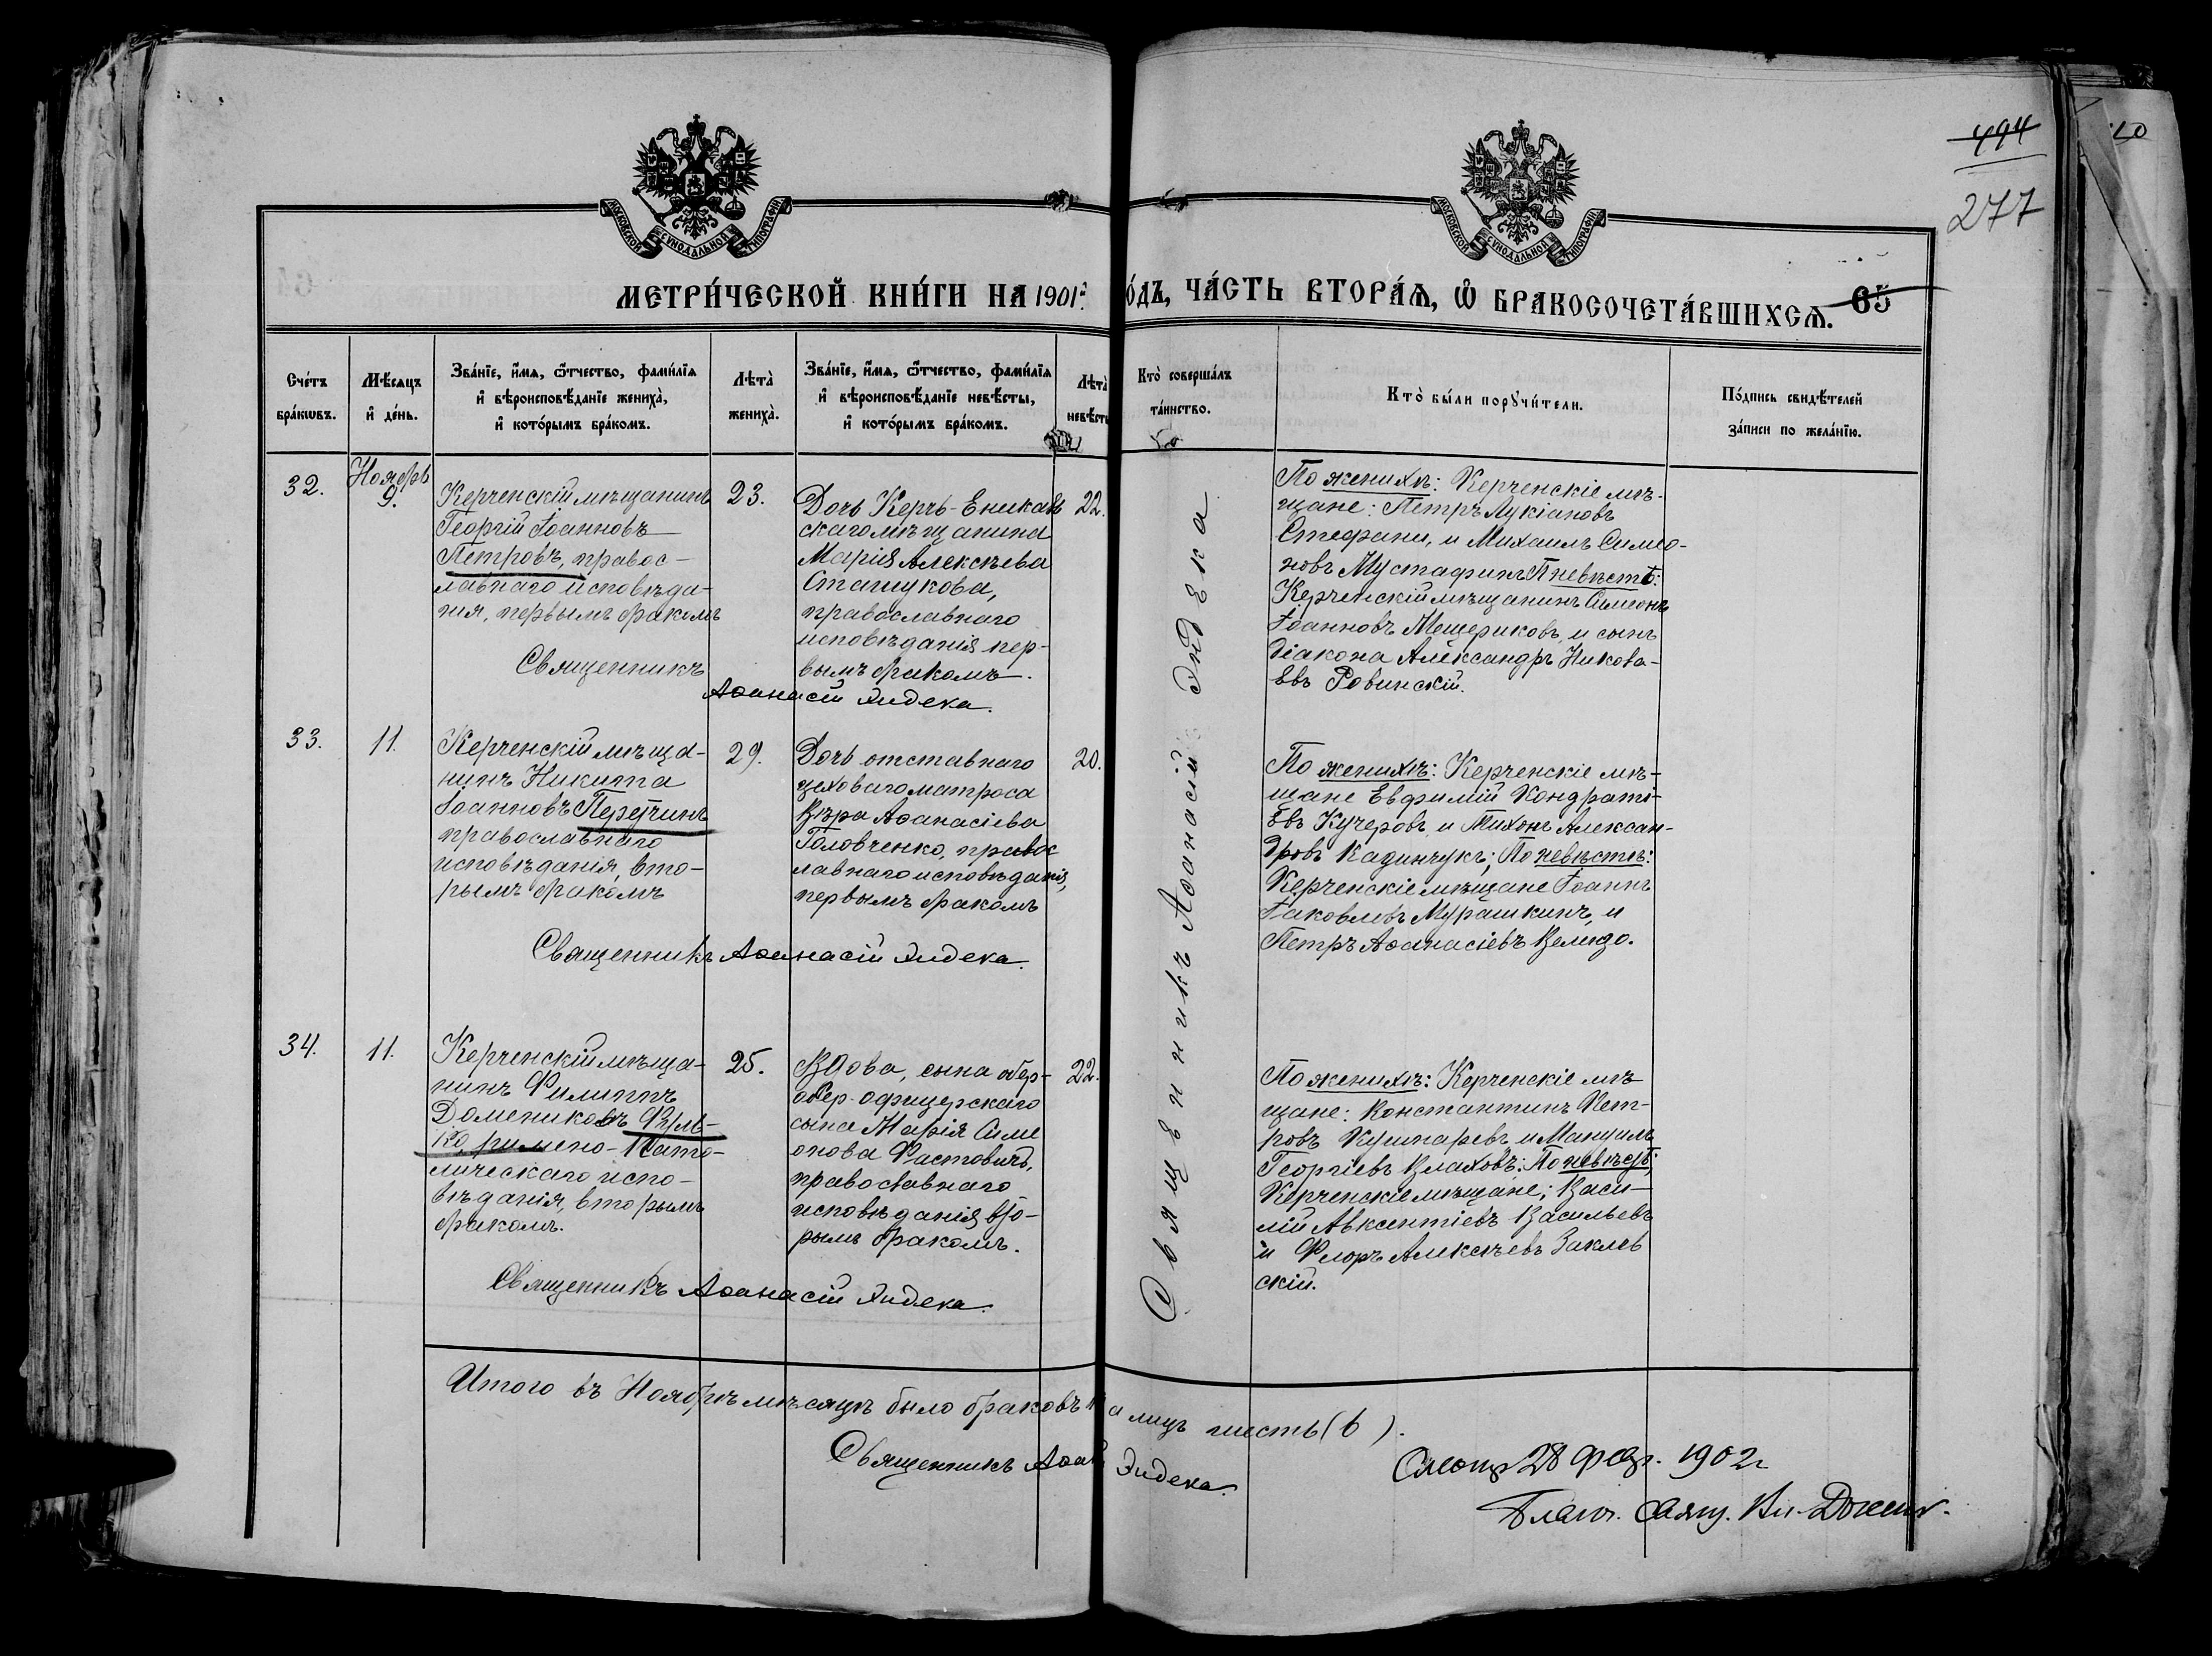 494
277
МОСКОВСКОЙ СУНОДАЛЬНОЙ ТИПОГРАФІИ
МОСКОВСКОЙ СУНОДАЛЬНОЙ ТИПОГРАФІИ
МЕТРИ́ЧЕСКОЙ КНИ́ГИ НА 1901 г. ОДЪ, ЧА́СТЬ ВТОРА́Ѧ, Ѡ҆ БРАКОСОЧЕТА́ВШИХСѦ. 65
Сче́тъ
бра́кѡвъ.
Мѣ́сѧцъ
и҆ де́нь.
Зва́нїе, и҆́мѧ, ѻ҆́тчество, фами́лїѧ
и҆ вѣроисповѣ́данїе жениха̀,
и҆ кото́рымъ бра́комъ.
Лѣта̀
жениха̀.
Зва́нїе, и҆́мѧ, ѻ҆́тчество, фами́лїѧ
и҆ вѣроисповѣ́данїе невѣ́сты,
и҆ кото́рымъ бра́комъ.
Лѣта̀
невѣ́сты
Кто̀ соверша́лъ
та́инство.
Кто̀ бы́ли порꙋчи́тели.
По́дпись свидѣ́телей
за́писи по жела́нїю.
32.
Ноябрь
9.
Керченскій мѣщанинъ
Георгій Іоанновъ
Петровъ, правос-
лавнаго исповѣда-
нія, первымъ бракомъ
23.
Дочь Керчь-Еникаль
скаго мѣщанина
Марія Алексѣева
Сташукова,
православнаго
исповѣданія пер-
вымъ бракомъ.
22.
Священникъ
Аѳанасій Эндека.
По женихѣ: Керченскіе мѣ-
щане: Петръ Лукіановъ
Стефани, и Михаилъ Симео-
новъ Мустафинъ П невѣстѣ:
Керченскій мѣщанинъ Симеонъ
Іоанновъ Мещериковъ, и сынъ
діакона Александръ Никола-
евъ Ровинскій.
33.
11.
Керченскій мѣща-
нинъ Никита
Іоанновъ Перетчинъ
православнаго
исповѣданія, вто-
рымъ бракомъ
29.
Дочь отставнаго
цеховаго матроса
Вѣра Аѳанасіева
Головченко, правос
лавнаго исповѣданія,
первымъ бракомъ
20.
Священникъ Аѳанасій Эндека.
По женихѣ: Керченскіе мѣ-
щане Евфимій Кондраті-
евъ Кучеровъ, и Тихонъ Алексан-
дровъ Кадинчукъ; По невѣстѣ:
Керченскіе мѣщане Іоаннъ
Іаковлевъ Мурашкинъ, и
Петръ Аѳанасіевъ Велидо.
34.
11.
Керченскій мѣща-
нинъ Филиппъ
Доменикоевъ
римско-Като-
лическаго испо-
вѣданія, вторымъ
бракомъ.
25.
Вдова, сына обер-
обер-офицерскаго
сына Марія Симе
онова Фастовичъ,
православнаго
исповѣданія вто-
рымъ бракомъ.
22.
Священникъ Аѳанасій Эндека.
По женихѣ: Керченскіе мѣ
щане: Константинъ Пет-
ровъ Кушнаревъ и Мануилъ
Георгіевъ Влаховъ: По невѣстѣ:
Керченскіе мѣщане; Васи-
лій Авксентіевъ Васильевъ
и Флоръ Алексѣевъ Заклев
скій.
Священникъ Аѳанасій Эндека
Итого въ Ноябрѣ мѣсяцѣ было браковъ на лицъ шесть (6).
Священникъ Аѳан Эндека.
28 Февр. 1902 г
Благоч. Свящ. Вл.